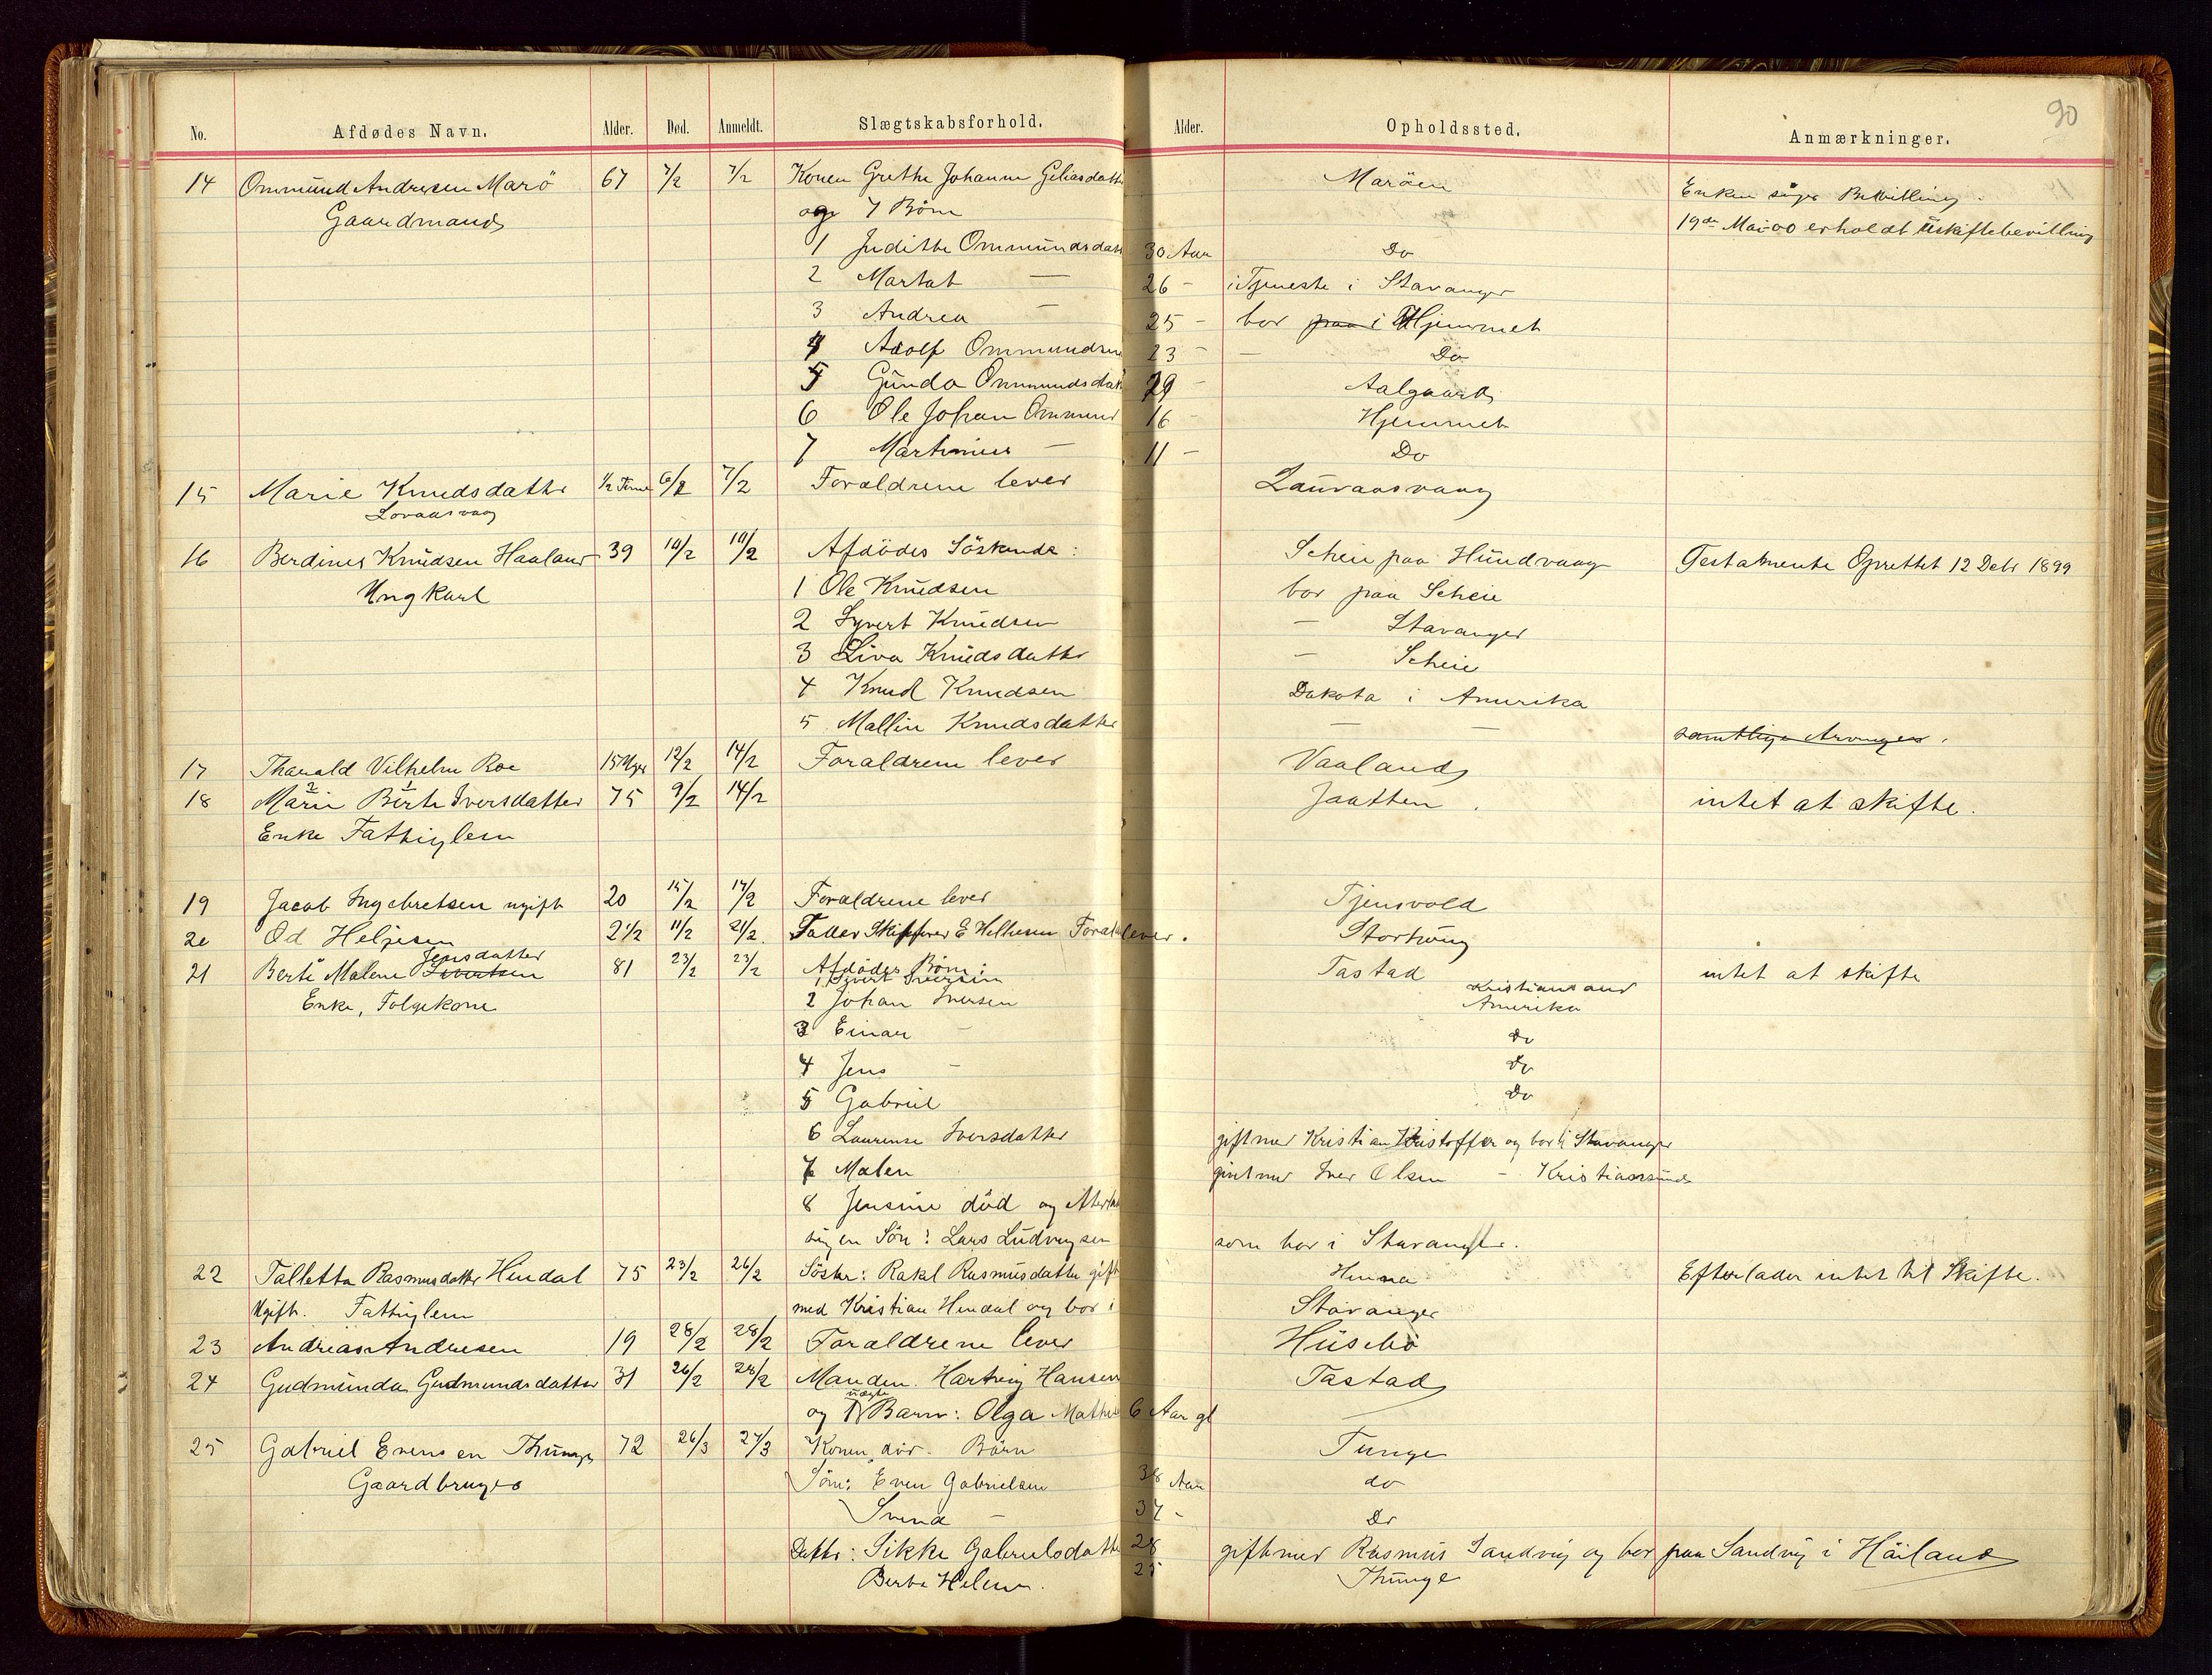 90
No. Afdødes Navn. Alder. Død. Anmeldt. Slægtskabsforhold. Alder. Opholdssted. Anmærkninger.
14 Ommund Andresen Marö 67 7/2 7/2 Konen Grethe Johanne Geliasdatte Maröen Enken söger Bevilling.
Gaardmand og 7 Börn 19de Mai 00 erholdt Uskiftebevilling
1 Judithe Ommundsdatt 30 Aar Do
2 Martat — 26 - i Tjeneste i Stavanger
3 Andrea — 25 - bor paa i Hjemmet
4 Adolf Ommundsen 23 - — Do
5 Gunda Ommundsdatt 29 - Aalgaard
6 Ole Johan Ommund 16 - Hjemmet
7 Martinius — 11 - Do
15 Marie Knudsdatter 1/2 Time 6/2 7/2 Forældrene lever Lauvaasvaag
Lovaasvaag
16 Berdines Knudsen Haaland 39 10/2 10/2 Afdödes Söskende: Scheie paa Hundvaag Testamente Oprettet 12 Debr 1899
Ungkarl 1 Ole Knudsen bor paa Scheie
2 Syvert Knudsen — Stavanger
3 Liva Knudsdatter — Scheie
4 Knud Knudsen Dakota i Amerika
5 Mallin Knudsdatter — — samtlige Arvinger.
17 Tharald Vilhelm Roe 15 Uger 12/2 14/2 Forældrene lever Vaaland
18 Marie Berte Iversdatter 75 9/2 14/2 Jaatten. intet at skifte.
Enke Fattiglem
19 Jacob Ingebretsen ugift 20 15/2 17/2 Forældrene lever Tjensvold
20 Od Heljesen 2 1/2 11/2 21/2. Fader Skipper E Helliesen Foræl lever. Storhoug
Jensdatter
21 Berte Malene Sivertsen 81 23/2 23/2 Afdödes Börn: Tastad intet at skifte
1 Syvert Iversen Kristiansand
Enke, Folgekone 2 Johan Iversen Amerika
3 Einar — Do
4 Jens — Do
5 Gabriel Do
6 Laurense Iversdatter gift med Kristian Kristoffer og bor i Stavanger
7 Malen gift med Iver Olsen — Kristianssund
8 Jensine död og efterlad
sig en Sön: Lars Ludvigsen som bor i Stavanger.
22 Talletta Rasmusdatter Hindal 75 23/2 26/2 Söster: Rakl Rasmusdatter gift Hinna Efterlader intet til Skifte.
Ugift. Fattiglem med Kristian Hindal og bor i Stavanger
23 Andreas Andresen 19 28/2 28/2 Forældrene lever Husebö
24 Gudmunda Gudmundsdatter 31 26/2 28/2 Manden. Hartvig Hansen Tastad
ægte
og 1 Barn: Olga Mathie 6 Aar gl
25 Gabriel Evensen Thunge 72 26/3 27/3 Konen död. Börn Tunge
Gaardbruger Sön: Even Gabrielsen 38 Aar do
Svend — 37 - Do
Datter: Sikke Gabrielsdatte 28 gift med Rasmus Sandvig og bor paa Sandvig i Höiland
Berte Helene. 25 Thunge